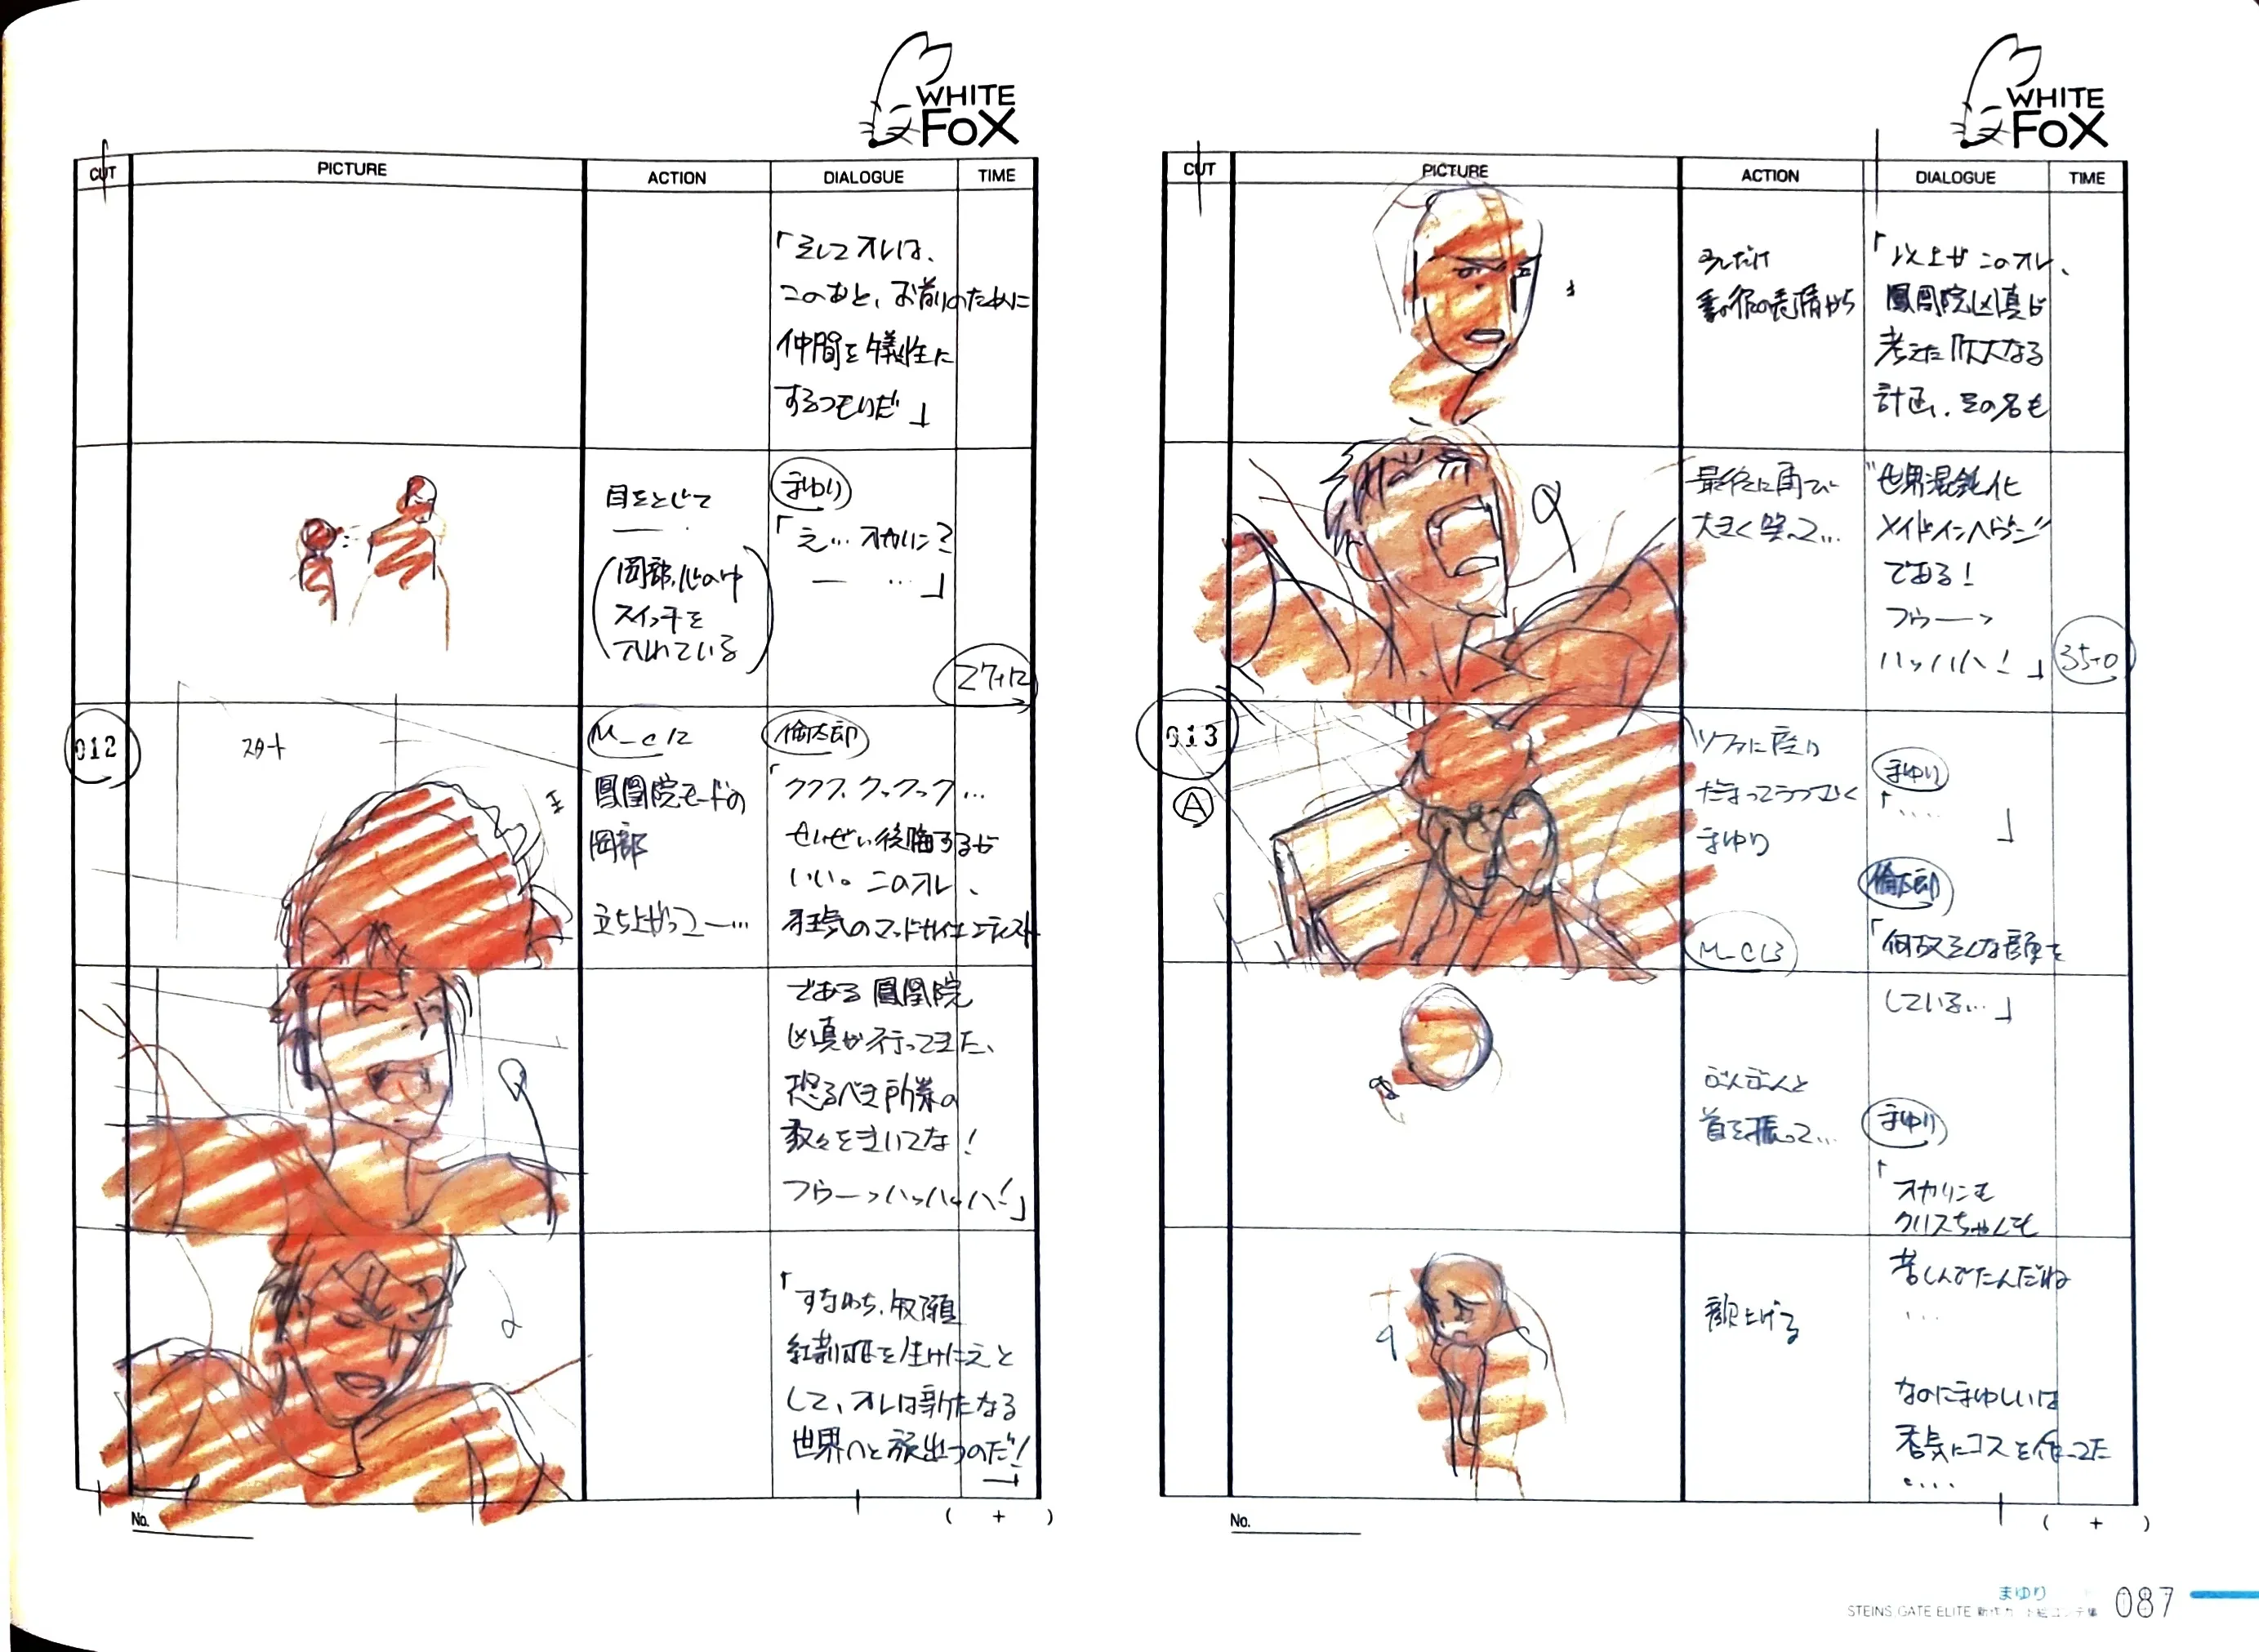 WHITE
FOX
CUT
PICTURE
ACTION
DIALOGUE
TIME
「そしてオレは、
このあと、お前のために
仲間を犠牲に
するつもりだ」
目をとじて
(岡部、心の中
スイッチを
入れている)
まゆり
「え… オカリン?
… 」
27+12
012
スタート
M_C12
鳳凰院モードの
岡部
立ち上がって—…
倫太郎
「ククク、クックック…
せいぜい後悔するが
いい。このオレ、
狂気のマッドサイエンティスト
である鳳凰院
凶真が行ってきた、
恐るべき所業の
数々を聞いてな!
フゥーッハッハッハ!」
「すなわち、
紅莉栖を生けにえと
して、オレは新たなる
世界へと旅出つのだ!
」
No.
( + )
WHITE
FOX
CUT
PICTURE
ACTION
DIALOGUE
TIME
少しだけ
素の彼の表情から
「以上が このオレ、
鳳凰院凶真が
考えた 大なる
計画、その名も
最後に再び
大きく笑って…
"世界混沌化
メイドインヘヴン"
である!
フゥーッ
ハッハハハ!」
35+0
013
A
ソファに座り
だまってうつむく
まゆり
M_C13
まゆり
「…. 」
倫太郎
「何故そんな顔を
している…」
ぶんぶんと
首を振って…
まゆり
「オカリンも
クリスちゃんも
苦しんでたんだね
...
顔上げる
なのにまゆしぃは
呑気にコスを作ってた
....
No.
( + )
まゆり
STEINS;GATE ELITE 新作カット絵コンテ集
087